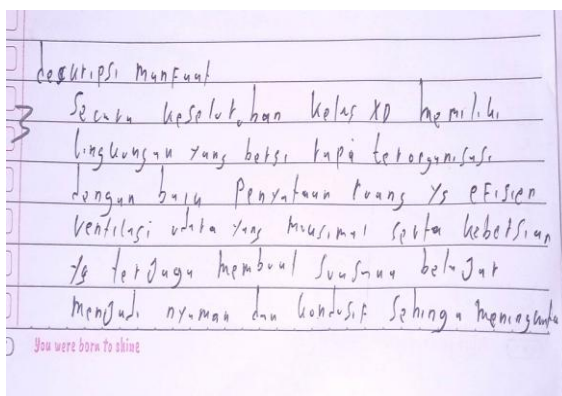 deskripsi manfaat
3 Secara keseluruhan kelas XD memiliki
lingkungan yang bersi rapi terorganisasi
dengan baik Penyataan ruang yg efisien
ventilasi udara yang maksimal serta kebersian
yg terjaga membuat suasana belajar
menjadi nyaman dan kondusif sehinga
You were born to shine